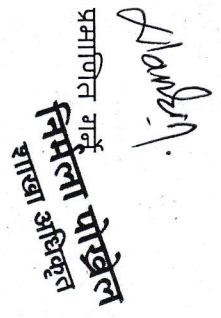 प्रमाणित गर्ने
निर्मला पोखरेल
शाखा अधिकृत